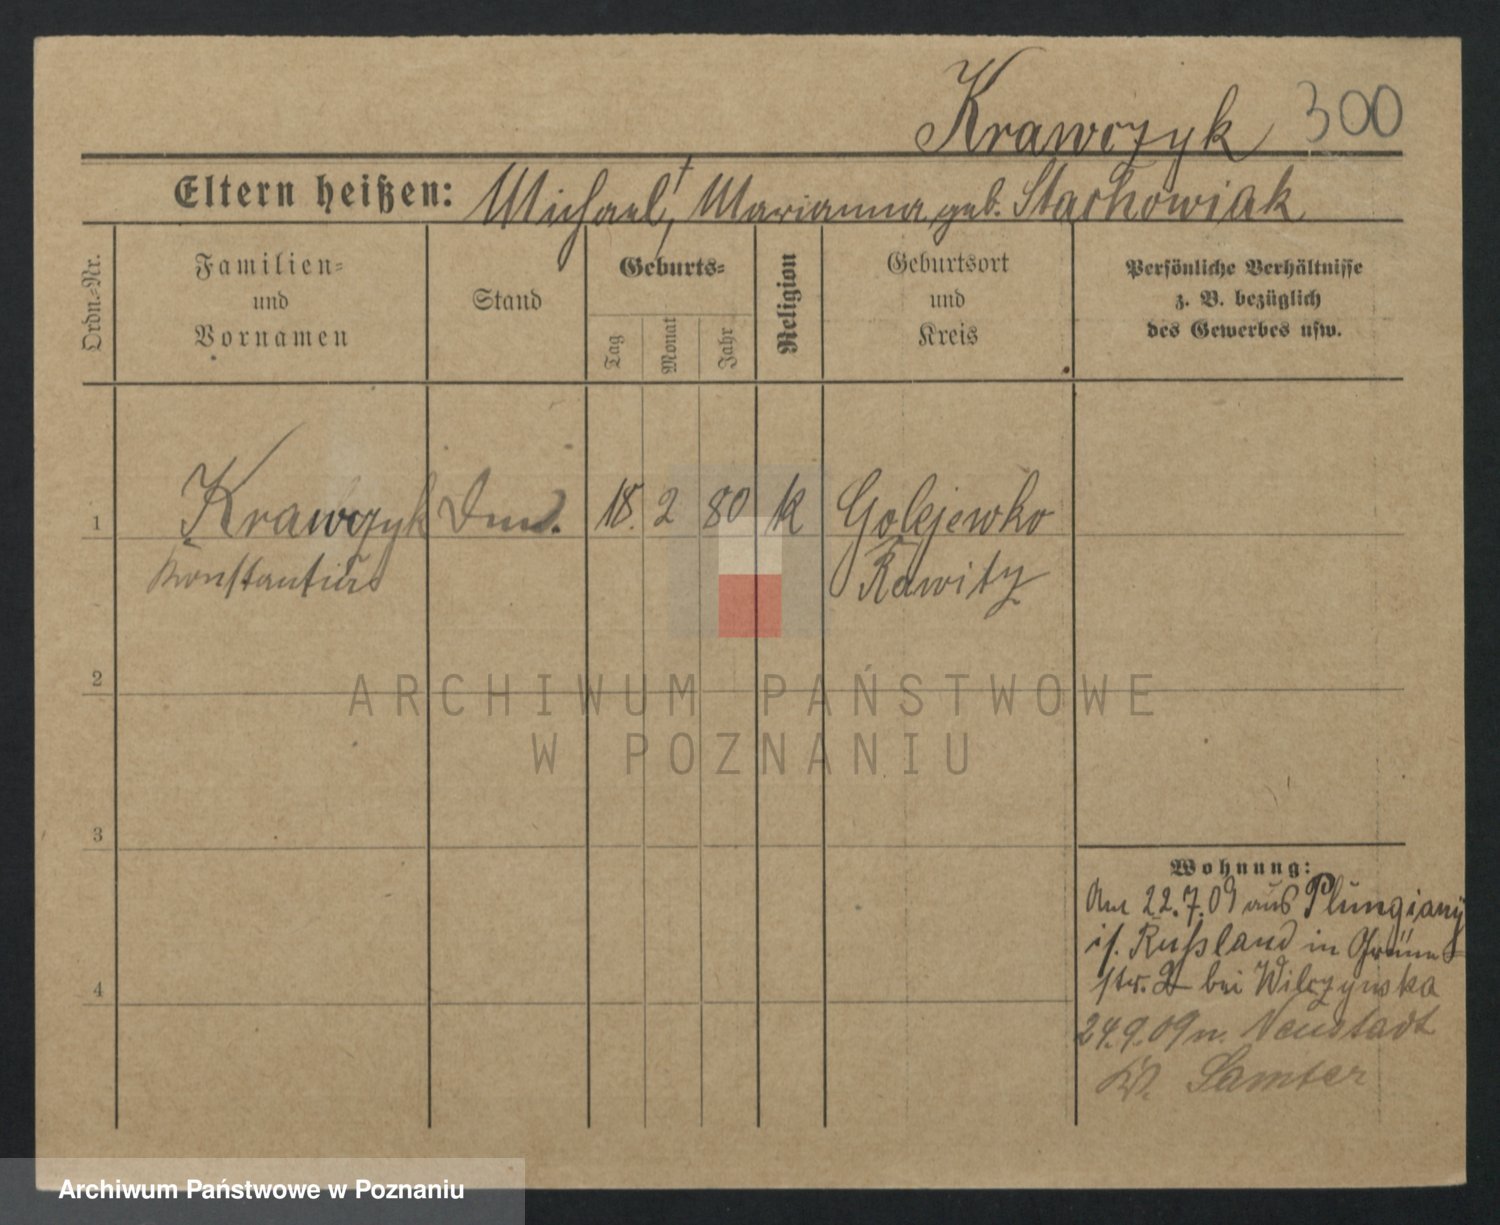 Krawczyk 300
Eltern heißen: Michael †, Marianna geb. Stachowiak
Ordn.-Nr.
Familien- und Vornamen
Stand
Geburts-
Tag
Monat
Jahr
Religion
Geburtsort und Kreis
Persönliche Verhältnisse
z. B. bezüglich
des Gewerbes usw.
1 Krawczyk 18. 2 80 k Golejewko
Konstantin Rawitz
2
3
4
Wohnung:
Am 22.7.09 aus Plungiany
if. Rußland in Grüne
str. 2 bei Wilczynska
24.9.09 n. Neustadt
Kr. Samter
ARCHIWUM PAŃSTWOWE
W POZNANIU
Archiwum Państwowe w Poznaniu